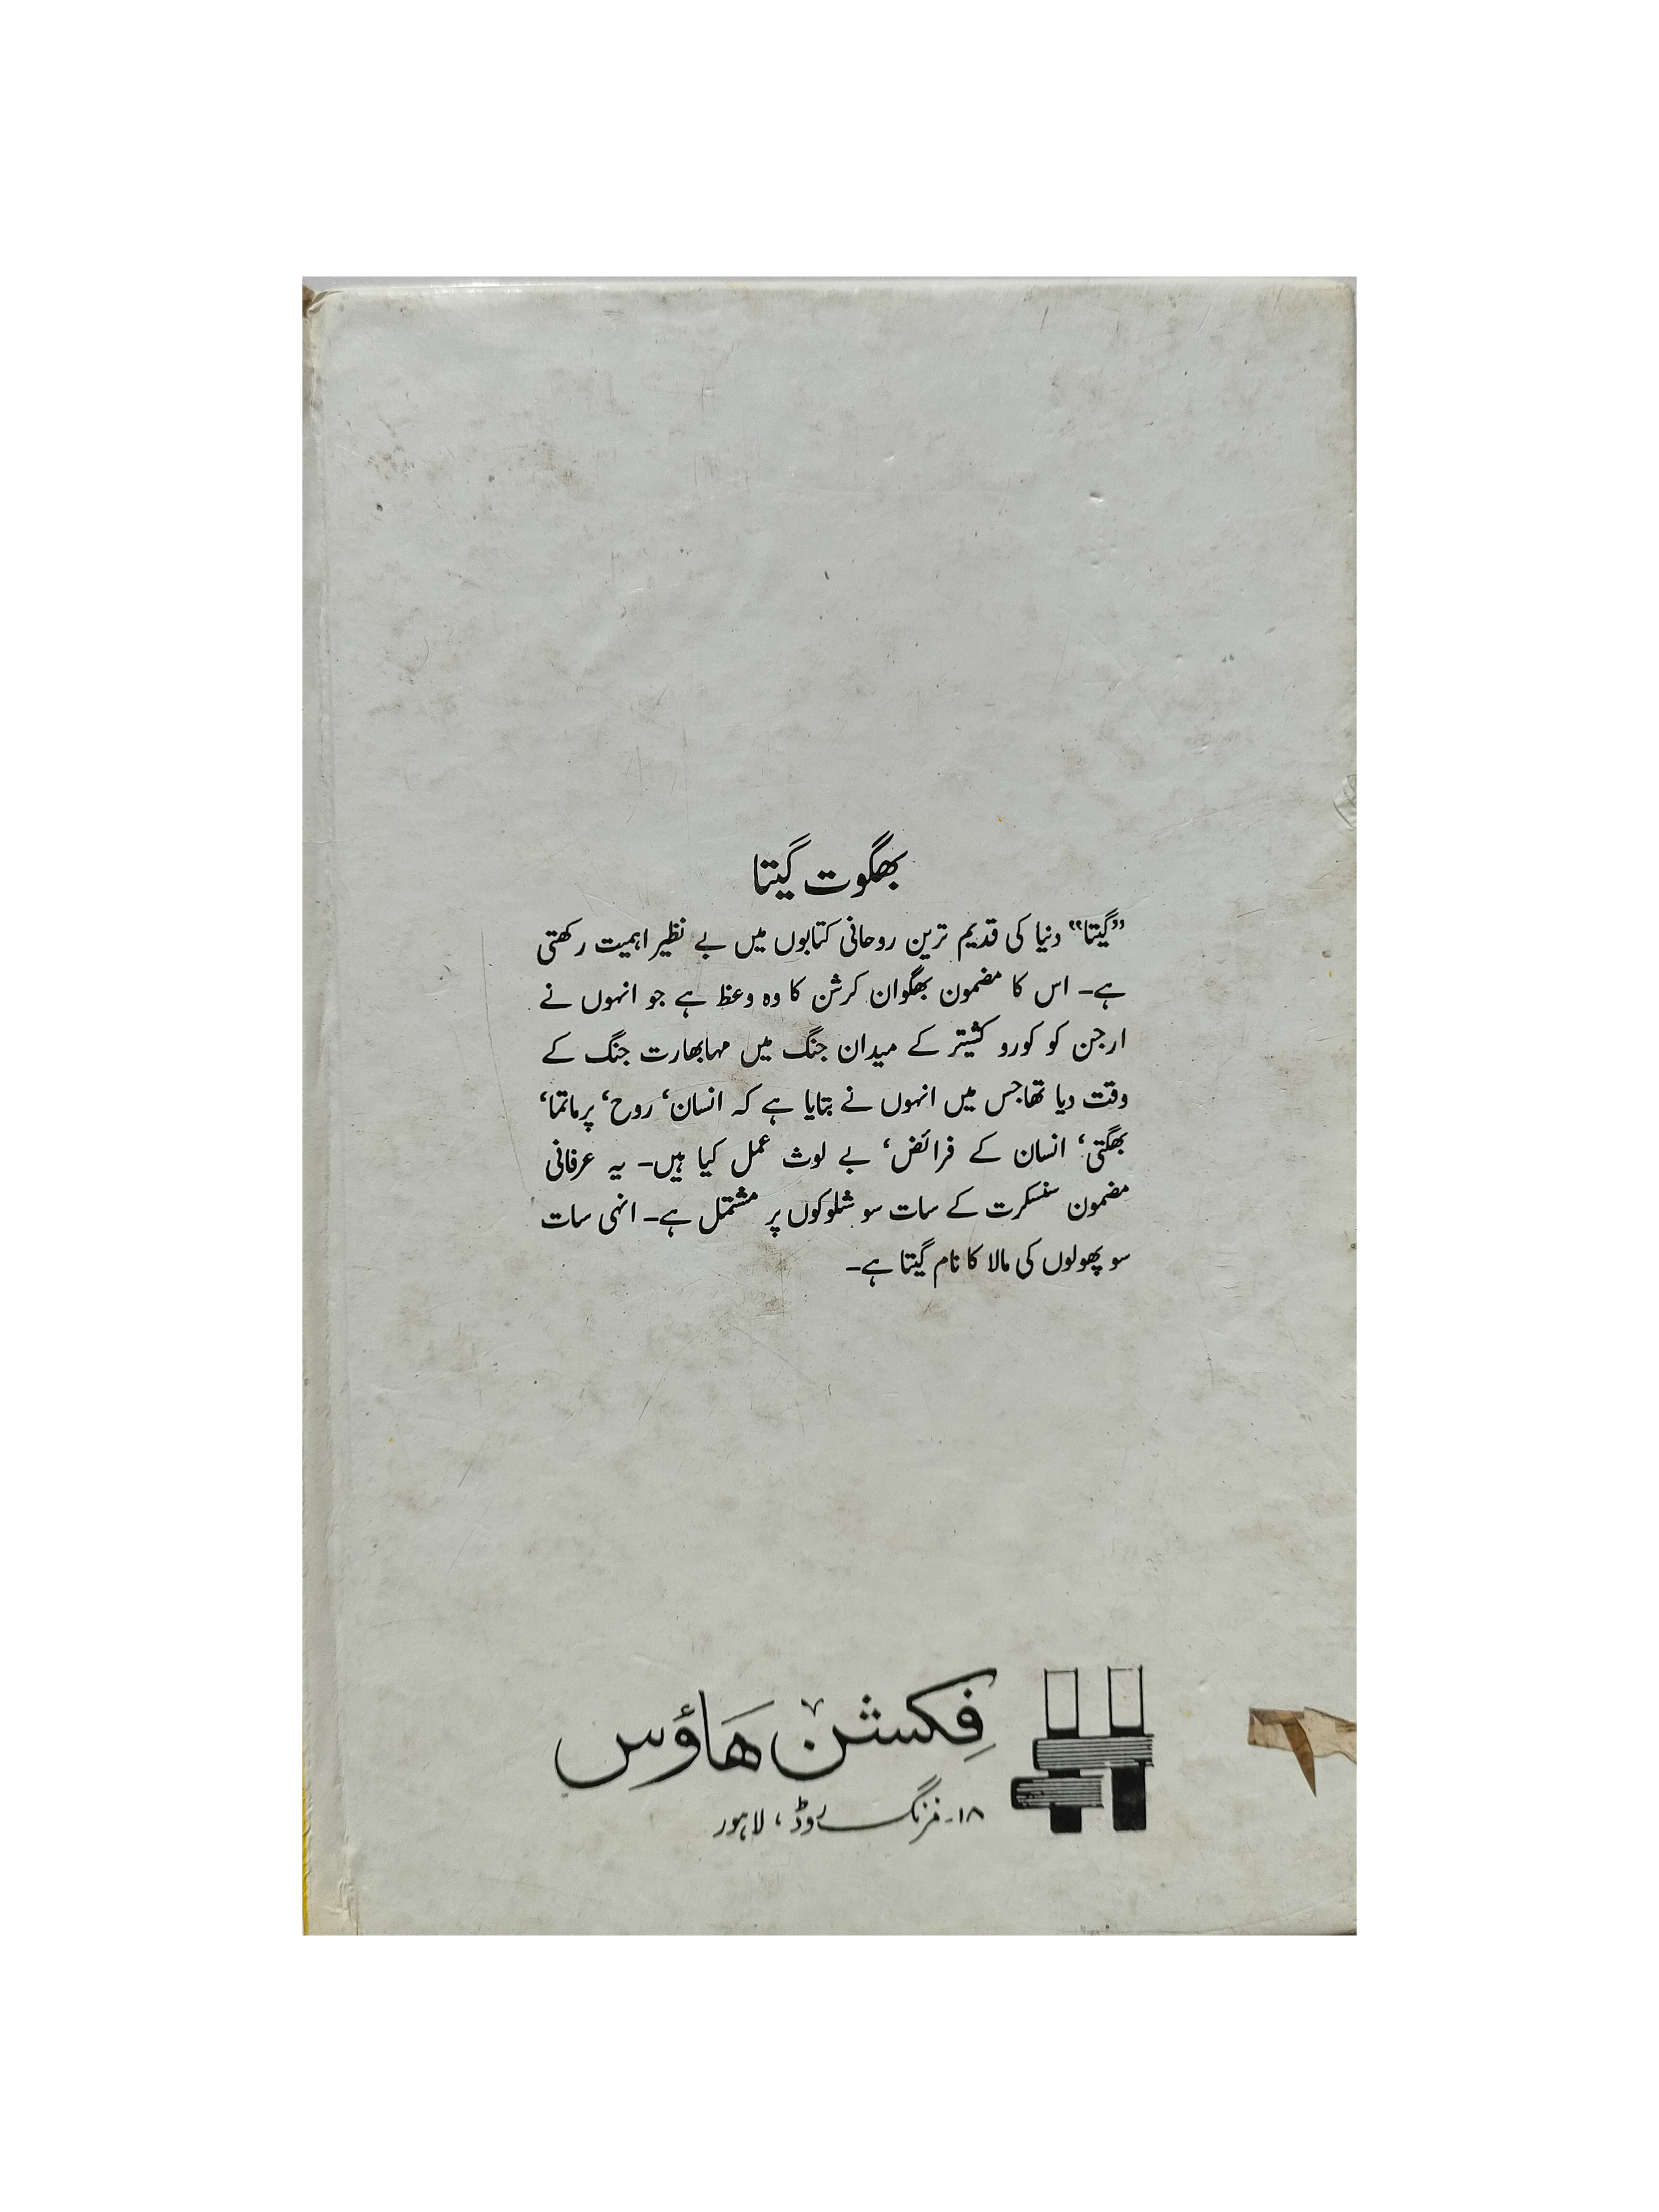 بھگوت گیتا
”گیتا“ دنیا کی قدیم ترین روحانی کتابوں میں بے نظیر اہمیت رکھتی
ہے۔ اس کا مضمون بھگوان کرشن کا وہ وعظ ہے جو انہوں نے
ارجن کو کورو کشیتر کے میدان جنگ میں مہابھارت جنگ کے
وقت دیا تھا جس میں انہوں نے بتایا ہے کہ انسان‘ روح‘ پرماتما‘
بھگتی‘ انسان کے فرائض‘ بے لوث عمل کیا ہیں۔ یہ عرفانی
مضمون سنسکرت کے سات سو شلوکوں پر مشتمل ہے۔ انہی سات
سو پھولوں کی مالا کا نام گیتا ہے۔
فکشن ہاؤس
۱۸۔مزنگ روڈ، لاہور